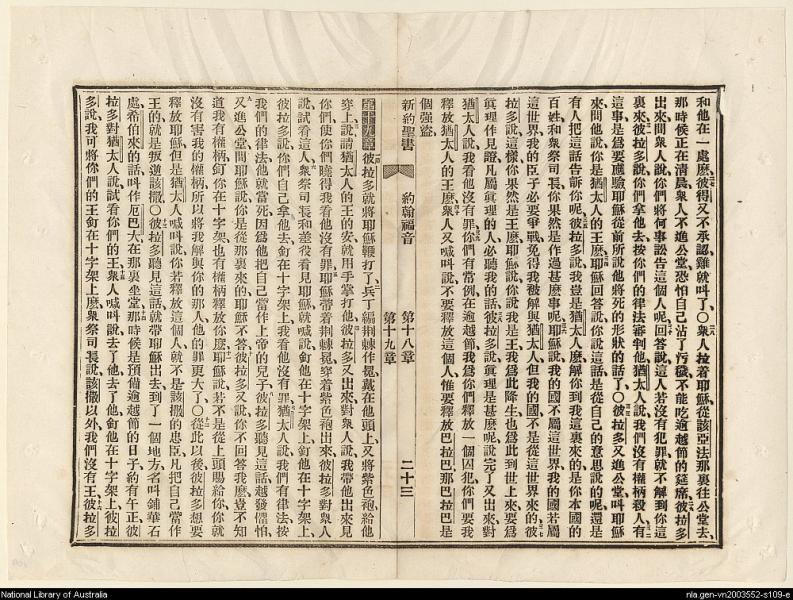 和他在一處麽彼得又不承認雞就叫了○衆人拉着耶穌從該亞法那裏往公堂去
那時候正在清晨衆人不進公堂恐怕自己沾了汚穢不能吃逾越節的筵席彼拉多
出來問衆人說你們將何事訟告這個人呢回答說這人若沒有犯罪就不解到你這
裏來彼拉多說你們拿他去按你們的律法審判他猶太人說我們沒有權柄殺人有
這事是爲要應驗耶穌從前所說他將死的形狀的話了○彼拉多又進公堂叫耶穌
來問他說你是猶太人的王麽耶穌回答說你說這話是從自己的意思說的呢還是
有人把這話告訴你呢彼拉多說我豈是猶太人麽解你到我這裏來的是你本國的
百姓和衆祭司長你果然是作過甚麽事呢耶穌說我的國不屬這世界我的國若屬
這世界我的臣子必要爭戰免得我被解與猶太人但我的國不是從這世界來的彼
拉多說這樣你果然是王麽耶穌說你說我是王我爲此降生也爲此到世上來要爲
眞理作見證凡屬眞理的人必聽我的話彼拉多說眞理是甚麽呢說完了又出來對
猶太人說我看他沒有罪你們有常例在逾越節我爲你們釋放一個囚犯你們要我
釋放猶太人的王麽衆人又喊叫說不要釋放這個人惟要釋放巴拉巴那巴拉巴是
個強盜
新約聖書 約翰福音 第十八章 第十九章 二十三
彼拉多就將耶穌鞭打了兵丁編荆棘作冕戴在他頭上又將紫色袍給他
穿上說請猶太人的王的安就用手掌打他彼拉多又出來對衆人說我帶他出來見
你們使你們曉得我看他沒有罪耶穌帶着荆棘冕穿着紫色袍出來彼拉多對衆人
說試看這人衆祭司長和差役看見耶穌就喊說釘他在十字架上釘他在十字架上
彼拉多說你們自己拿他去釘在十字架上我看他沒有罪猶太人說我們有律法按
我們的律法他就當死因爲他把自己當作上帝的兒子彼拉多聽見這話越發懼怕
又進公堂問耶穌說你是從那裏來的耶穌不答彼拉多又說你不回答我麽豈不知
道我有權柄釘你在十字架上也有權柄釋放你麽耶穌說若不是從上頭賜給你你就
沒有害我的權柄所以將我解與你的那人他的罪更大了○從此以後彼拉多想要
釋放耶穌但是猶太人喊叫說你若釋放這個人就不是該撒的忠臣凡把自己當作
王的就是叛逆該撒○彼拉多聽見這話就帶耶穌出去到了一個地方名叫鋪華石
處希伯來的話叫作厄巴大在那裏坐堂那時候是預備逾越節的日子約有午正彼
拉多對猶太人說試看你們的王衆人喊叫說去了他去了他釘他在十字架上彼拉
多說我可將你們的王釘在十字架上麽衆祭司長說該撒以外我們沒有王彼拉多
National Library of Australia
nla.gen-vn2003552-s109-e